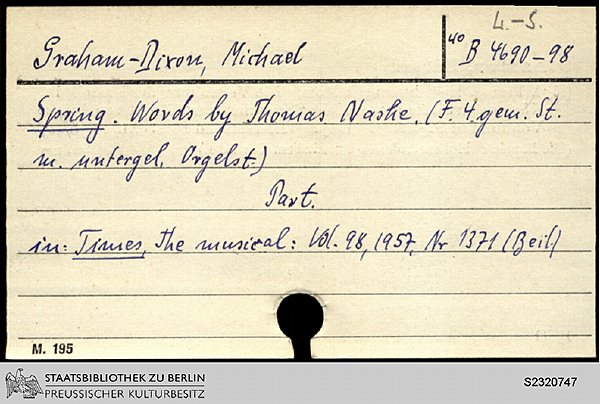 L.-S.
Graham-Dixon, Michael
4o B 4690-98
Spring. Words by Thomas Nashe. (F. 4 gem. St.
m. untergel. Orgelst.)
Part.
in: Times, the musical: Vol. 98, 1957, Nr 1371 (Beil)
M. 195
STAATSBIBLIOTHEK ZU BERLIN
PREUSSISCHER KULTURBESITZ
S2320747